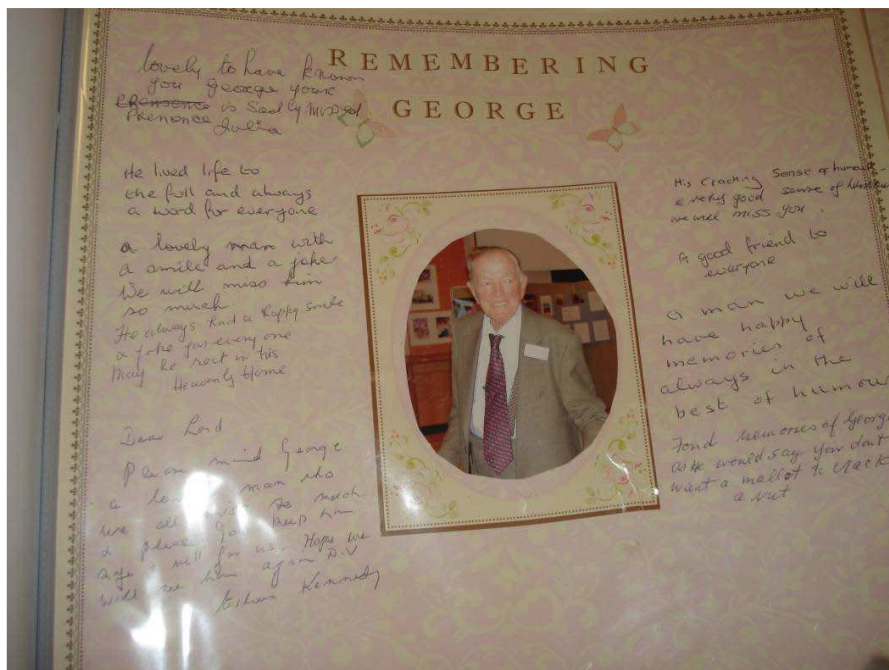 REMEMBERING
GEORGE
lovely to have known
you george your
is sadly missed
Prenonce Julia
He lived life to
the full and always
a word for everyone
a lovely man with
a smile and a joke
We will miss him
so much.
He always had a happy smile
a joke for every one
May he rest in his
Heavenly Home
Dear Lord
Please mind George
a man who
we all miss so much
& please God keep him
safe & well for us. Hope we
will see him again D.V
Kennedy
His Cracking Sense of humour
a very good sense of humour
we will miss you.
A good friend to
everyone
a man we will
have happy
memories of
always in the
best of humour
Fond memories of George
as He would say you don't
want a mallot to crack
a nut